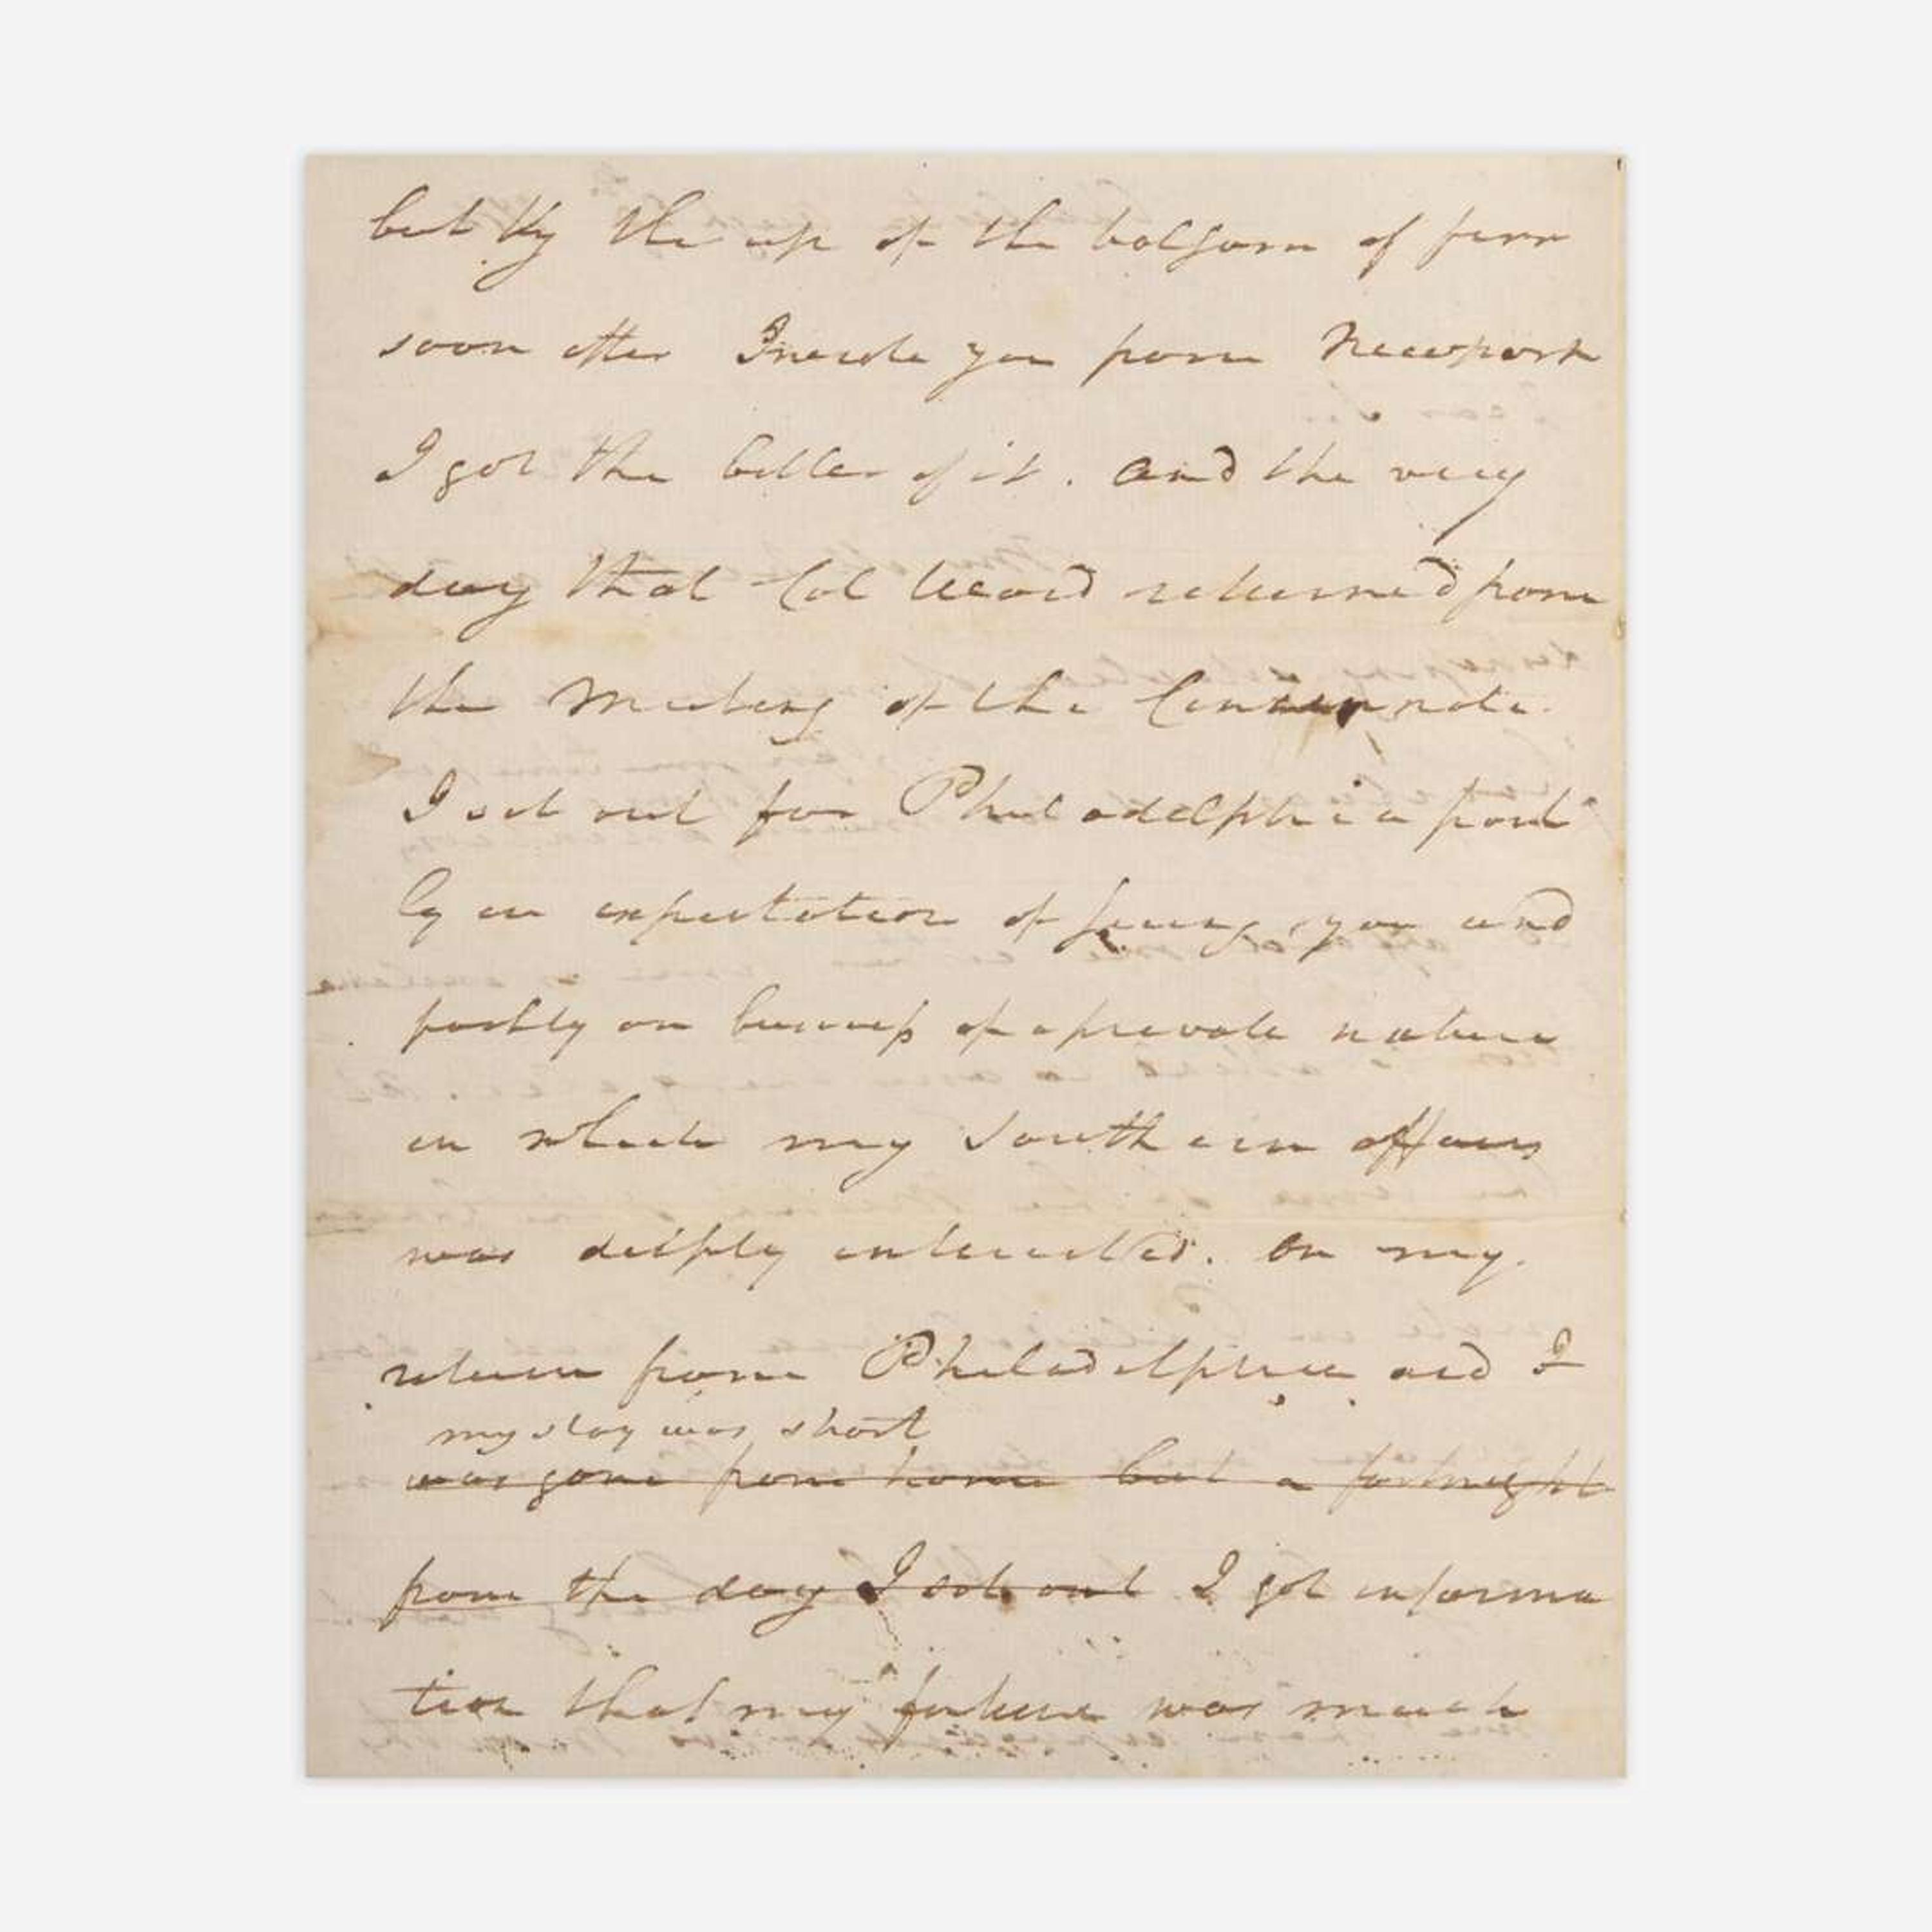 but by the use of the balsom of furr
soon after I wrote you from Newport
I got the better of it. and the very
day that Col Ward returned from
the Meeting of the
I set out for Philadelphia part
ly in expectation of seeing you and
partly on business of a private nature
in which my Southern affairs
was deeply interested. On my
return from Philadelphia and I
my stay was short
was gone from home but a fortnight
from the day I set out I got informa
tion that my future was much